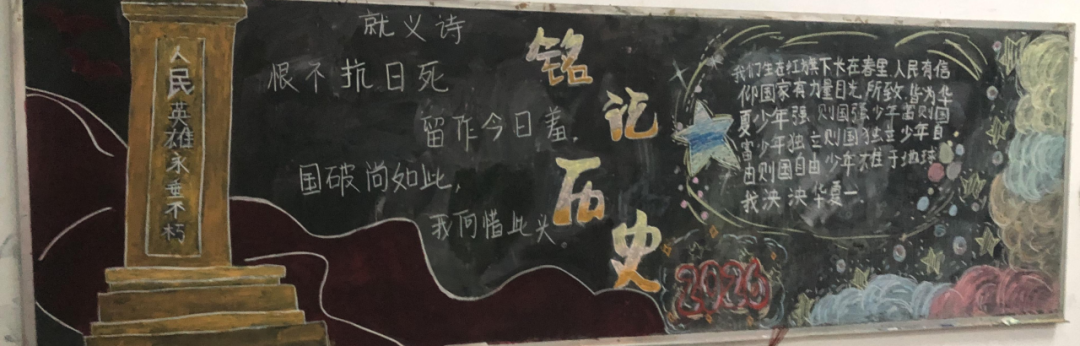 人民英雄永垂不朽
就义诗
恨不抗日死
留作今日羞.
国破尚如此,
我何惜此头.
铭记历史
我们生在红旗下长在春里,人民有信
仰国家有力量目光所致皆为华
夏少年强则国强少年富则国
富少年独立则国独立少年自
由则国自由少年雄于地球
我泱泱华夏一.
2026